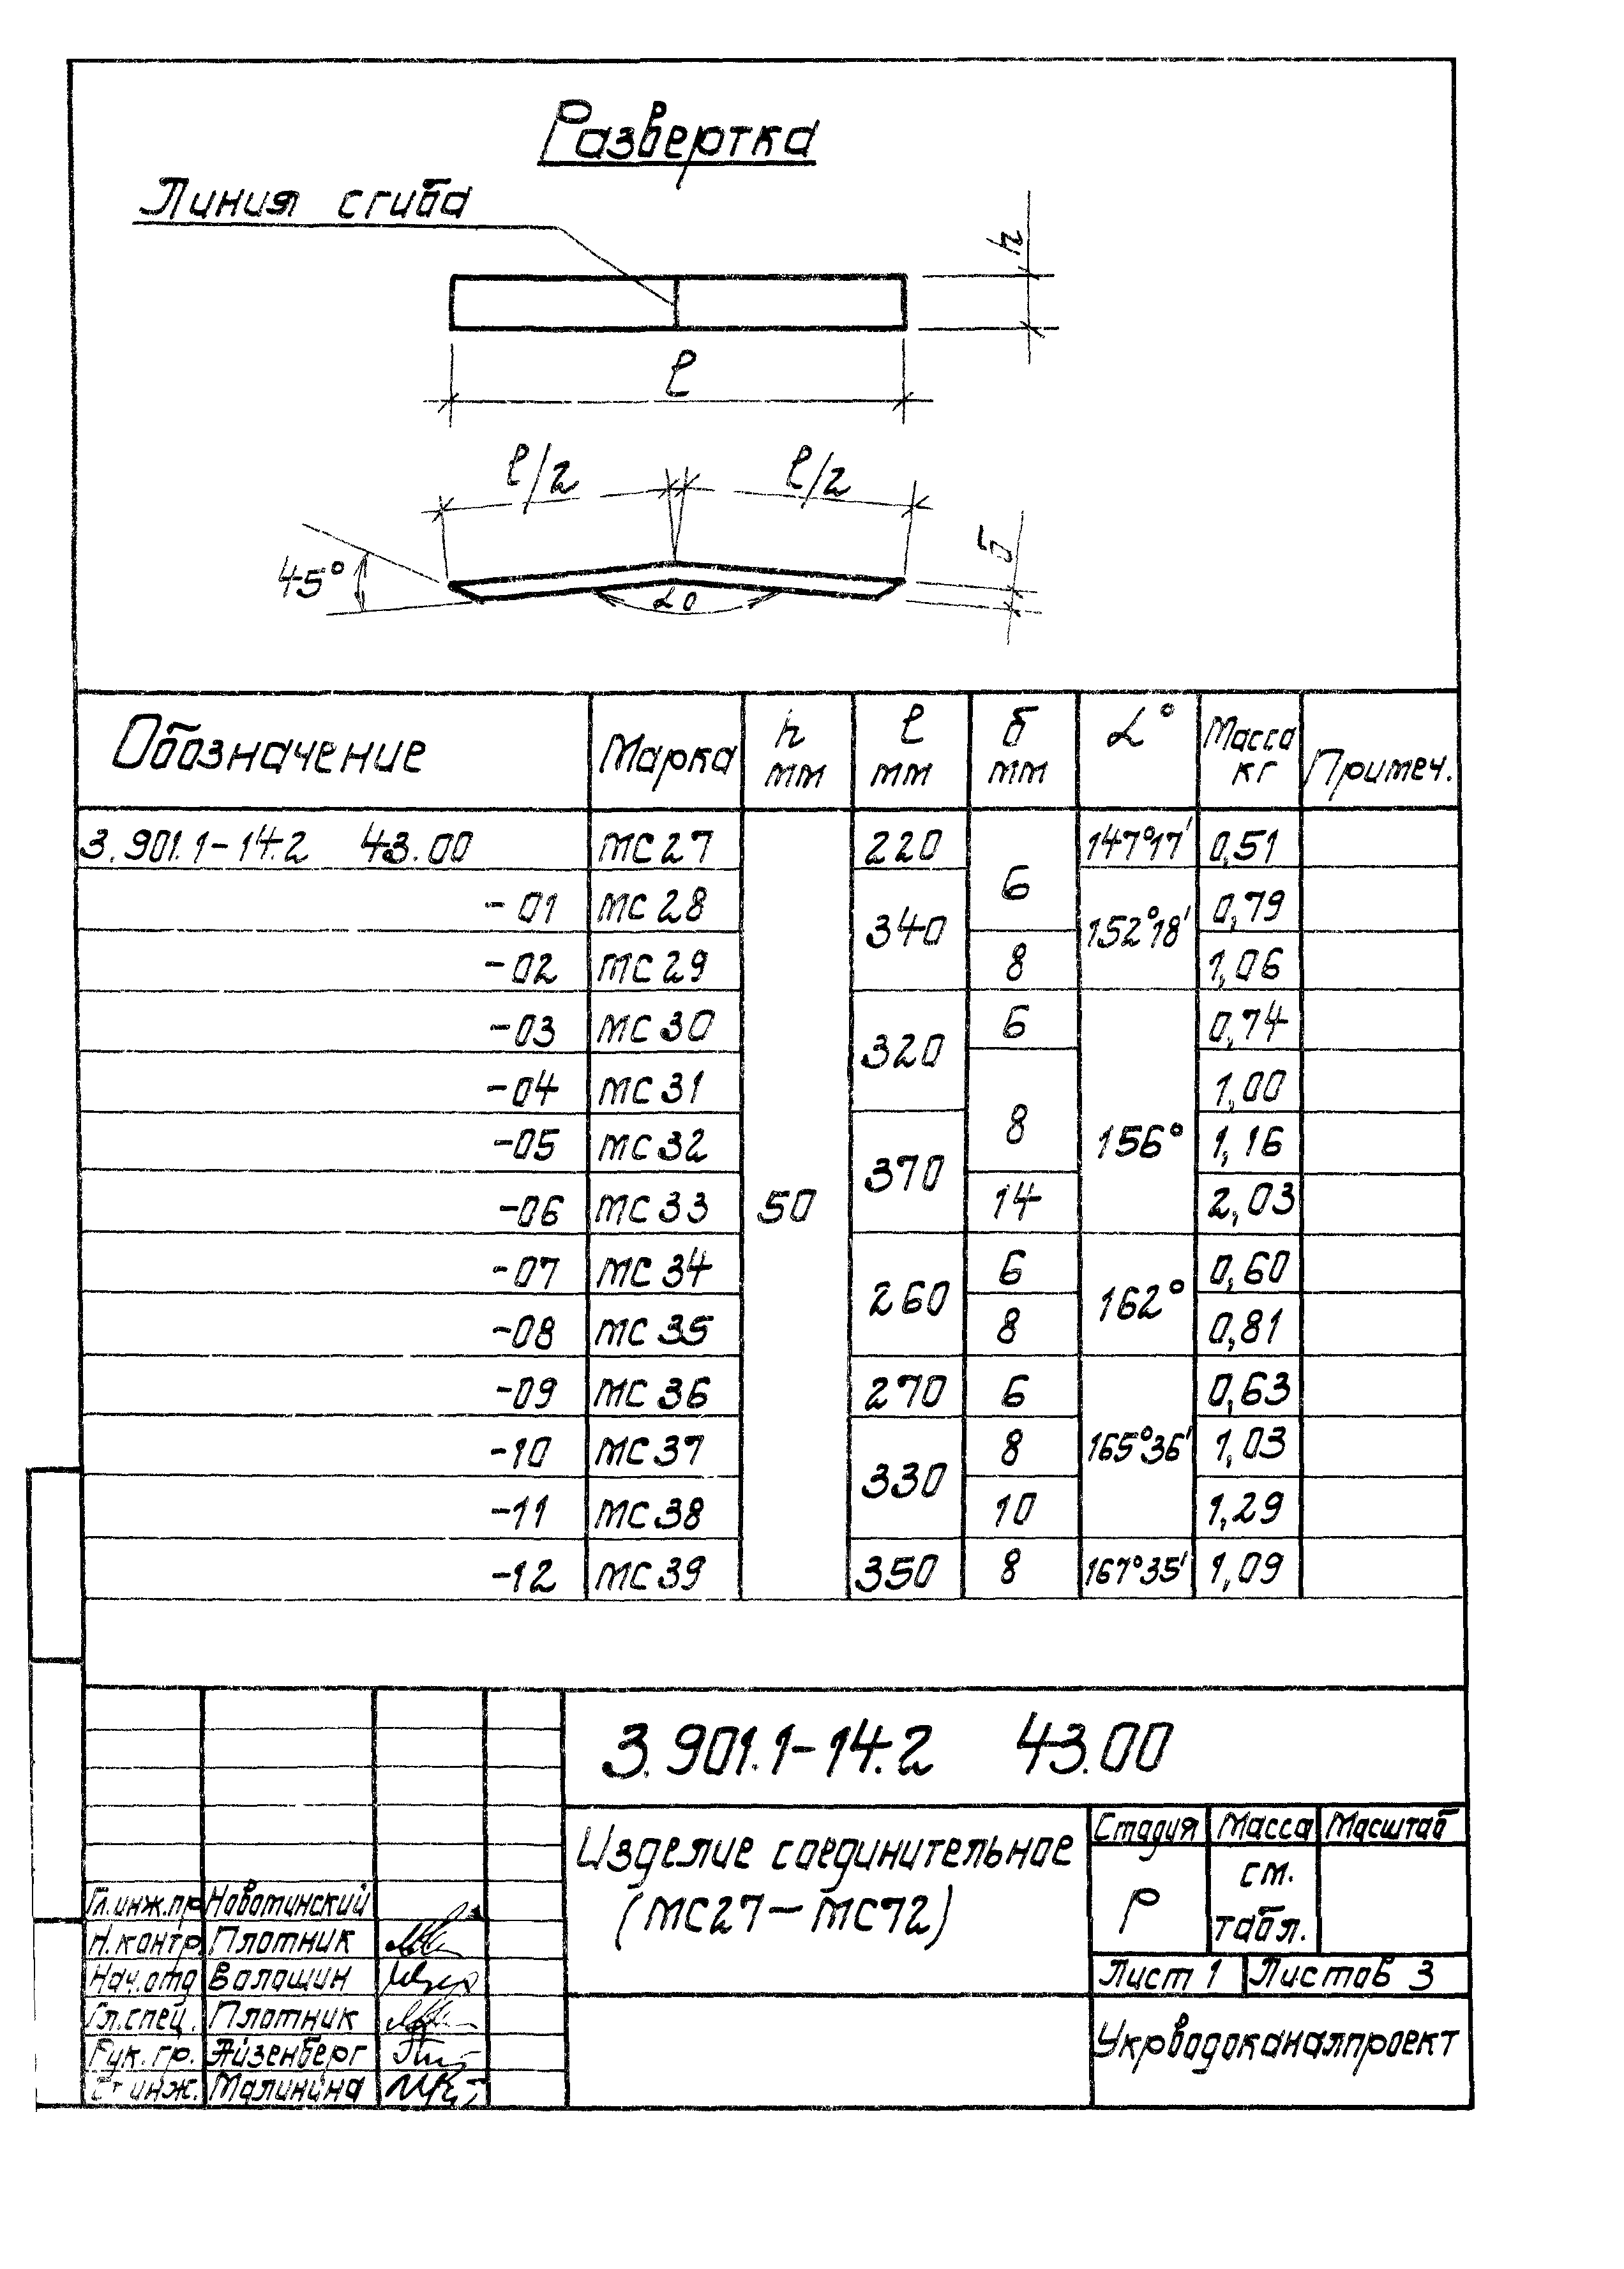 Развертка
Линия сгиба
h
ℓ
ℓ/2 ℓ/2
45° α° δ
Обозначение Марка h мм ℓ мм δ мм α° Масса кг Примеч.
3.901.1-14.2 43.00 МС27 50 220 6 147°17' 0,51
-01 МС28 340 152°18' 0,79
-02 МС29 8 1,06
-03 МС30 320 6 156° 0,74
-04 МС31 8 1,00
-05 МС32 370 1,16
-06 МС33 14 2,03
-07 МС34 260 6 162° 0,60
-08 МС35 8 0,81
-09 МС36 270 6 165°36' 0,63
-10 МС37 330 8 1,03
-11 МС38 10 1,29
-12 МС39 350 8 167°35' 1,09
3.901.1-14.2 43.00
Изделие соединительное
(МС27-МС72)
Стадия Масса Масштаб
Р см. табл.
Лист 1 Листов 3
Укрводоканалпроект
Гл.инж.пр Новотинский
Н.контр. Плотник
Нач.отд Валашин
Гл.спец. Плотник
Рук.гр. Айзенберг
Ст инж. Малинина